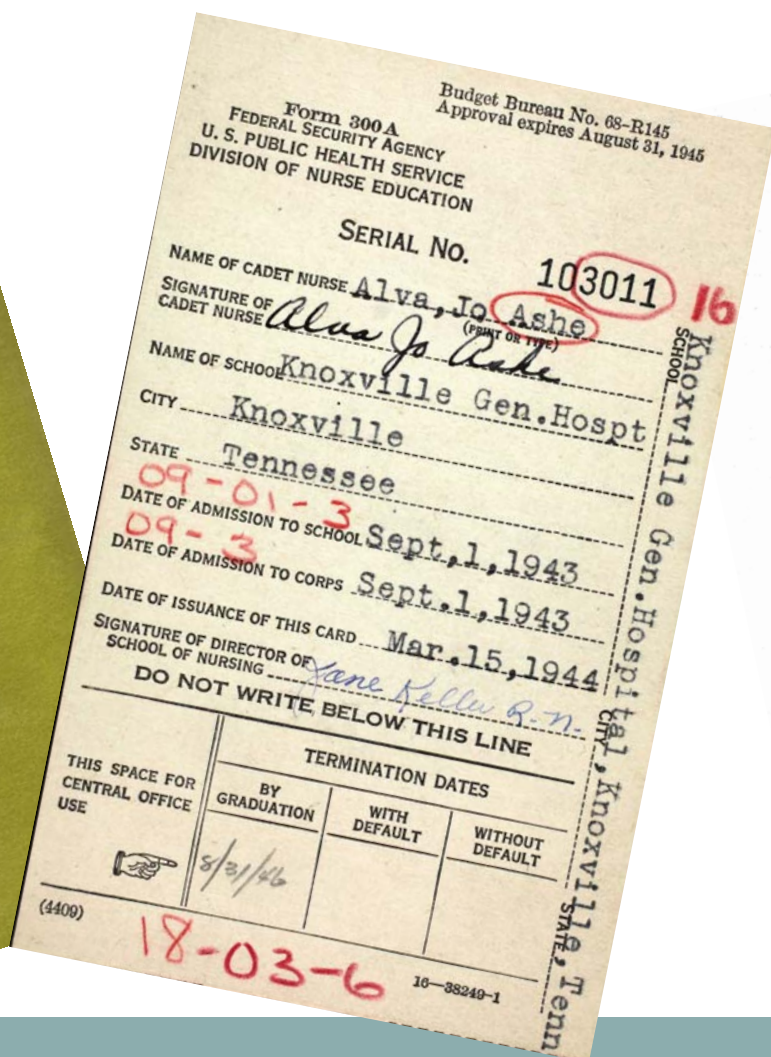 Budget Bureau No. 68-R145
Approval expires August 31, 1945
Form 300A
FEDERAL SECURITY AGENCY
U. S. PUBLIC HEALTH SERVICE
DIVISION OF NURSE EDUCATION
SERIAL NO. 103011 16
NAME OF CADET NURSE Alva, Jo Ashe
(PRINT OR TYPE)
SIGNATURE OF
CADET NURSE Alva Jo Ashe
NAME OF SCHOOL Knoxville Gen.Hospt
CITY Knoxville
STATE Tennessee
09-01-3
DATE OF ADMISSION TO SCHOOL Sept,1,1943
09-3
DATE OF ADMISSION TO CORPS Sept.1,1943
DATE OF ISSUANCE OF THIS CARD Mar.15,1944
SIGNATURE OF DIRECTOR OF
SCHOOL OF NURSING Jane Keller R.N.
DO NOT WRITE BELOW THIS LINE
THIS SPACE FOR
CENTRAL OFFICE
USE
TERMINATION DATES
BY
GRADUATION
WITH
DEFAULT
WITHOUT
DEFAULT
8/31/46
(4409)
18-03-6
16—38249-1
Knoxville Gen.Hospital,Knoxville,Tenn
SCHOOL CITY STATE